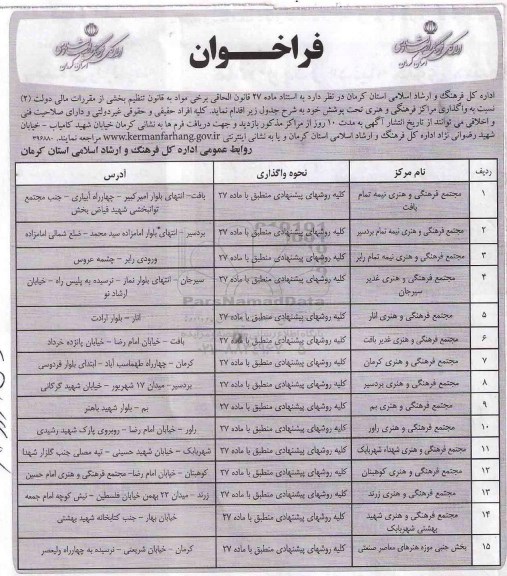 فراخوان
اداره کل فرهنگ و ارشاد اسلامی استان کرمان در نظر دارد به استناد ماده ۲۷ قانون الحاقی برخی مواد به قانون تنظیم بخشی از مقررات مالی دولت (۲)
نسبت به واگذاری مراکز فرهنگی و هنری تحت پوشش خود به شرح جدول زیر اقدام نمایند. کلیه افراد حقیقی و حقوقی غیردولتی و دارای صلاحیت فنی
و اخلاقی می توانند از تاریخ انتشار آگهی به مدت ۱۰ روز از مراکز مذکور بازدید و جهت دریافت فرم ها به نشانی کرمان خیابان شهید کامیاب - خیابان
شهید رضوانی نژاد اداره کل فرهنگ و ارشاد اسلامی استان کرمان و یا به نشانی اینترنتی www.kermanfarhang.gov.ir مراجعه نمایند.
روابط عمومی اداره کل فرهنگ و ارشاد اسلامی استان کرمان
ردیف نام مرکز نحوه واگذاری آدرس
۱ مجتمع فرهنگی و هنری نیمه تمام بافت کلیه روشهای پیشنهادی منطبق با ماده ۲۷ بافت- انتهای بلوار امیرکبیر - چهارراه آبیاری - جنب مجتمع توانبخشی شهید فیاض بخش
۲ مجتمع فرهنگی و هنری نیمه تمام بردسیر کلیه روشهای پیشنهادی منطبق با ماده ۲۷ بردسیر - انتهای بلوار امامزاده سید محمد - ضلع شمالی امامزاده
۳ مجتمع فرهنگی و هنری نیمه تمام رابر کلیه روشهای پیشنهادی منطبق با ماده ۲۷ ورودی رابر - چشمه عروس
۴ مجتمع فرهنگی و هنری غدیر سیرجان کلیه روشهای پیشنهادی منطبق با ماده ۲۷ سیرجان - انتهای بلوار نماز - نرسیده به پلیس راه - خیابان ارشاد نو
۵ مجتمع فرهنگی و هنری انار کلیه روشهای پیشنهادی منطبق با ماده ۲۷ انار - بلوار ارادت
۶ مجتمع فرهنگی و هنری غدیر بافت کلیه روشهای پیشنهادی منطبق با ماده ۲۷ بافت - خیابان امام رضا - خیابان پانزده خرداد
۷ مجتمع فرهنگی و هنری کرمان کلیه روشهای پیشنهادی منطبق با ماده ۲۷ کرمان - چهارراه طهماسب آباد - ابتدای بلوار فردوسی
۸ مجتمع فرهنگی و هنری بردسیر کلیه روشهای پیشنهادی منطبق با ماده ۲۷ بردسیر- میدان ۱۷ شهریور - خیابان شهید گرکانی
۹ مجتمع فرهنگی و هنری بم کلیه روشهای پیشنهادی منطبق با ماده ۲۷ بم - بلوار شهید باهنر
۱۰ مجتمع فرهنگی و هنری راور کلیه روشهای پیشنهادی منطبق با ماده ۲۷ راور - خیابان امام رضا - روبروی پارک شهید رشیدی
۱۱ مجتمع فرهنگی و هنری شهداء شهربابک کلیه روشهای پیشنهادی منطبق با ماده ۲۷ شهربابک - خیابان شهید حسینی - تپه مصلی جنب گلزار شهدا
۱۲ مجتمع فرهنگی و هنری کوهبنان کلیه روشهای پیشنهادی منطبق با ماده ۲۷ کوهبنان - خیابان امام رضا- مجتمع فرهنگی و هنری امام حسین
۱۳ مجتمع فرهنگی و هنری زرند کلیه روشهای پیشنهادی منطبق با ماده ۲۷ زرند - میدان ۲۲ بهمن خیابان فلسطین - نبش کوچه امام جمعه
۱۴ مجتمع فرهنگی و هنری شهید بهشتی شهربابک کلیه روشهای پیشنهادی منطبق با ماده ۲۷ خیابان بهار - جنب کتابخانه شهید بهشتی
۱۵ بخش جنبی موزه هنرهای معاصر صنعتی کلیه روشهای پیشنهادی منطبق با ماده ۲۷ کرمان - خیابان شریعتی - نرسیده به چهارراه ولیعصر
ParsNamadData